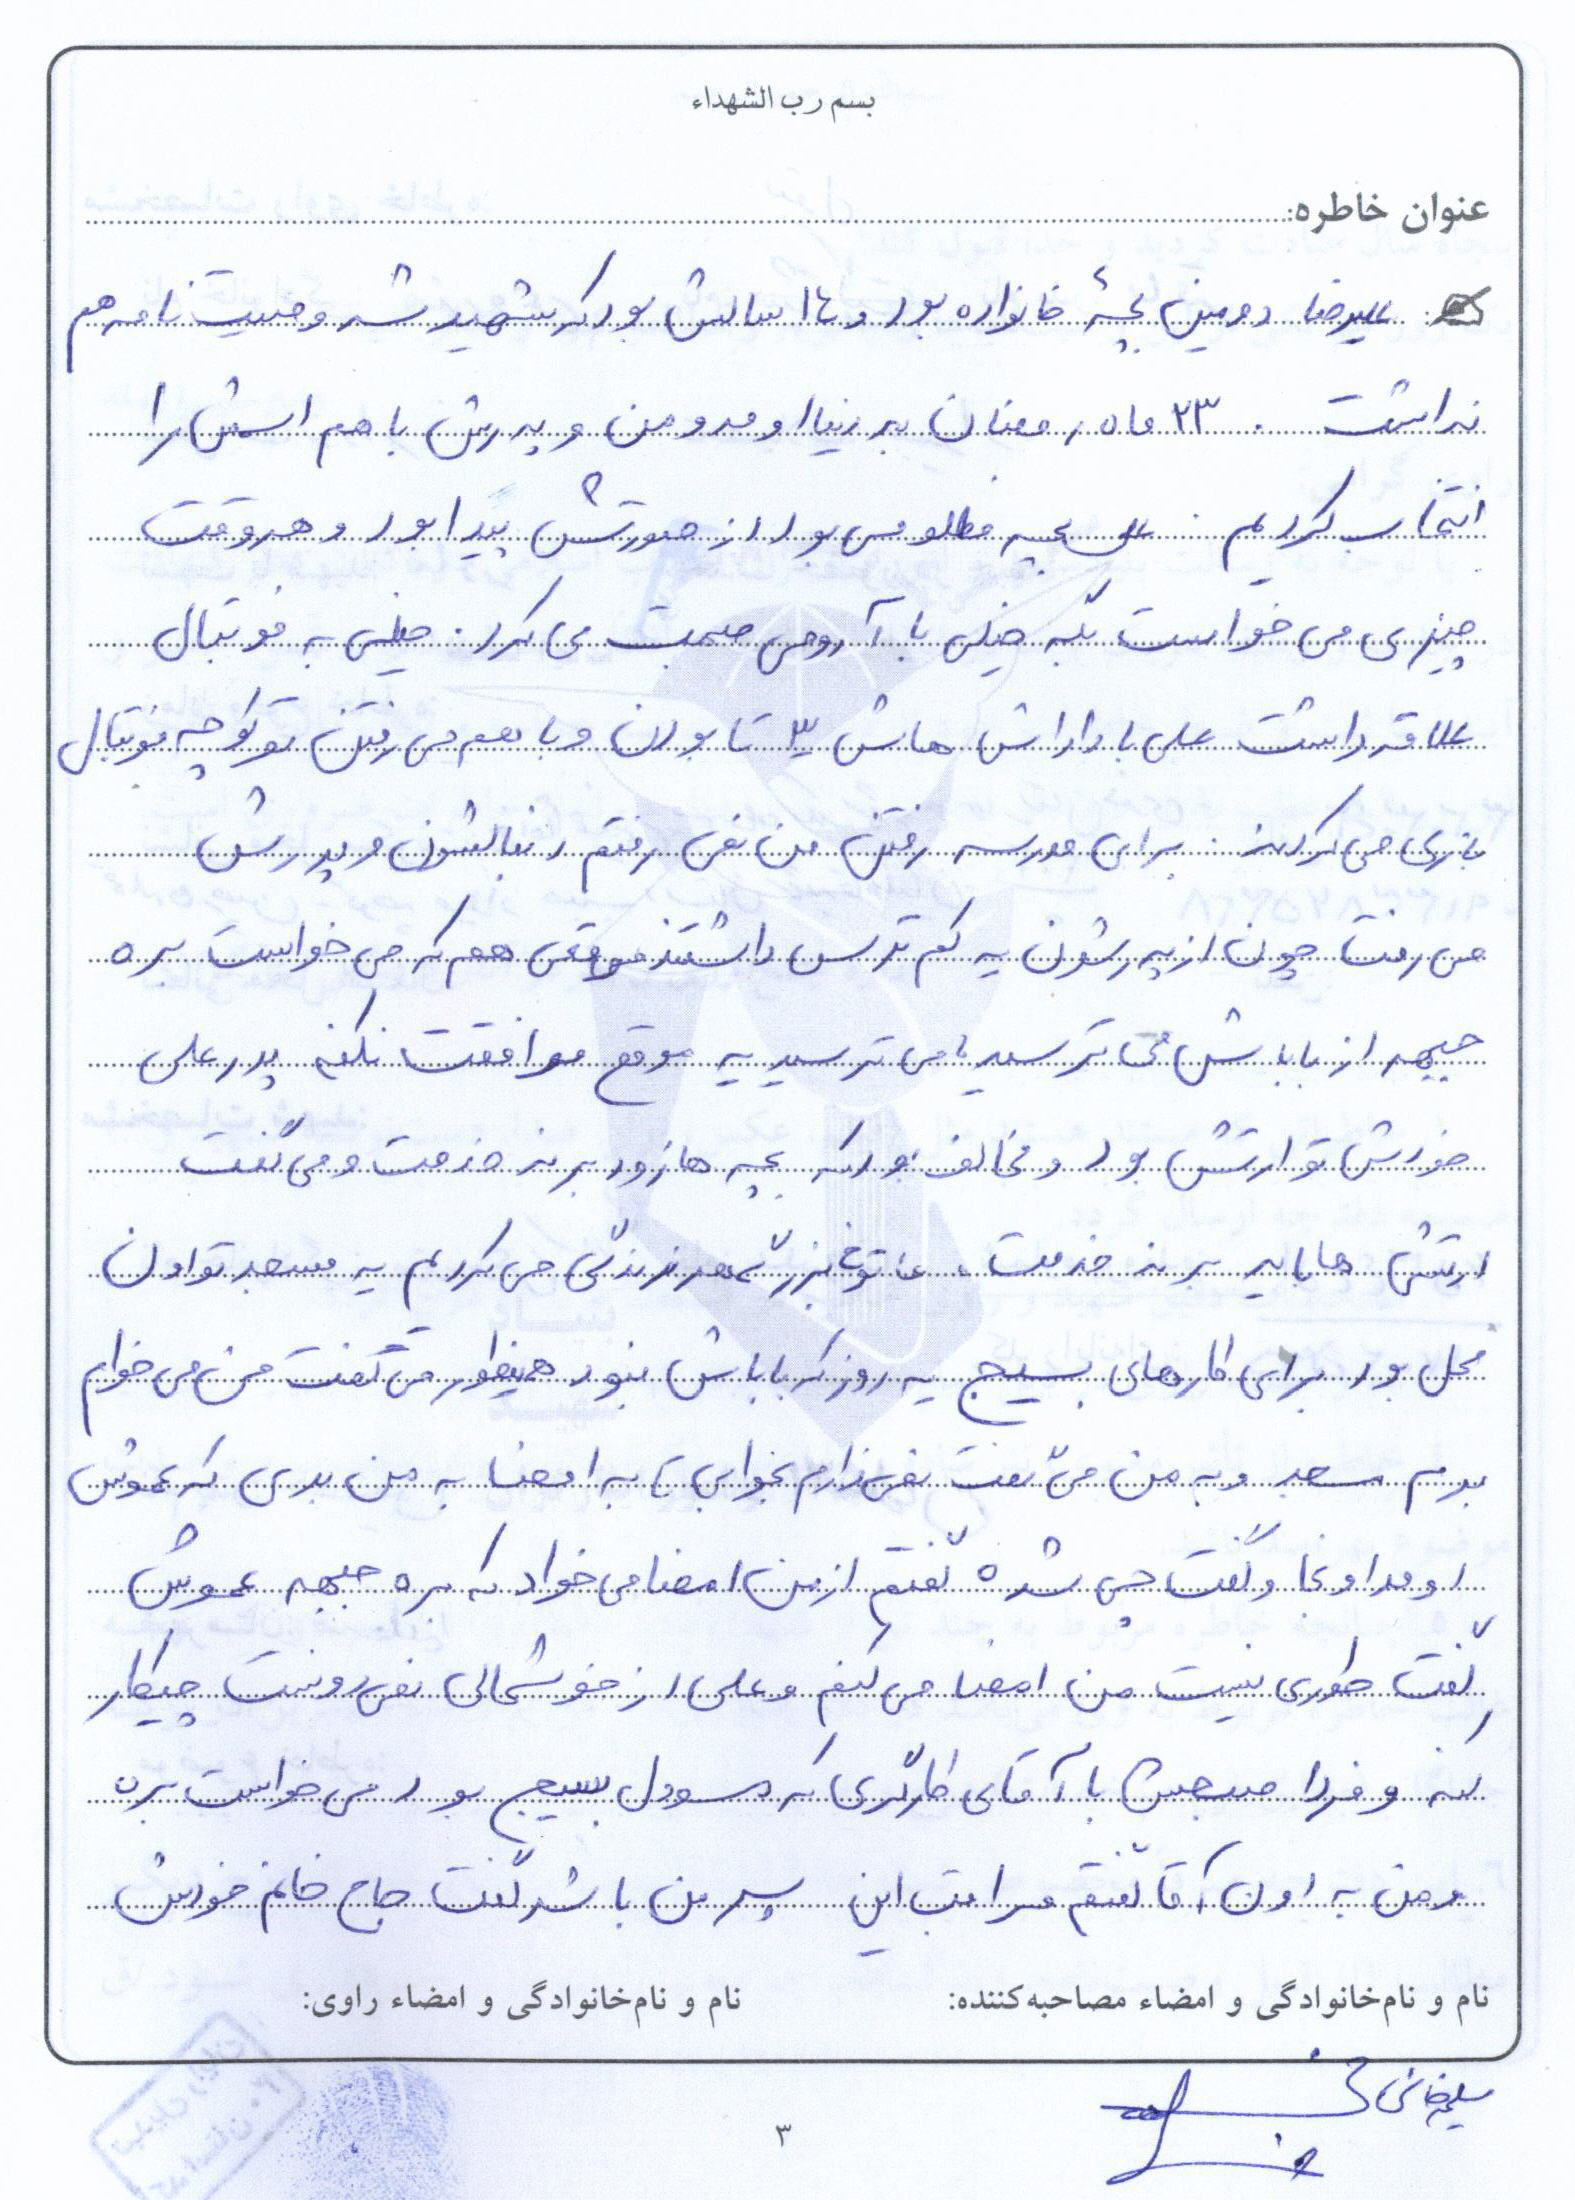 بسم رب الشهداء
عنوان خاطره:
علیرضا دومین بچۀ خانواده بود و ١٤ سالش بود که شهید شد وصیت نامه هم
نداشت . ۲۳ ماه رمضان به دنیا اومد و من و پدرش با هم اسمش را
انتخاب کردیم . علی بچه مظلومی بود از صورتش پیدا بود و هر وقت
چیزی می خواست بگه خیلی با آرومی صحبت می کرد . خیلی به فوتبال
علاقه داشت علی با داداش هاش ۳ تا بودن و با هم می رفتن تو کوچه فوتبال
بازی می کردند . برای مدرسه رفتن من نمی رفتم دنبالشون و پدرش
می رفت چون از پدرشون یه کم ترس داشتند موقعی هم که می خواست بره
جبهه از باباش می ترسید یا می ترسید یه موقع موافقت نکنه پدر علی
خودش تو ارتش بود و مخالف بود که بچه ها زود برند خدمت و می گفت
ارتش ها باید برند خدمت . ما تو بزرگمهر زندگی می کردیم یه مسجد تو اون
محل بود برای کارهای بسیج یه روز که باباش نبود همینطور می گفت من می خوام
برم مسجد و به من می گفت نمی ذارم بخوابی تا یه امضا به من بدی که عموش
اومد اونجا و گفت چی شده گفتم از من امضا می خواد که بره جبهه عموش
گفت طوری نیست من امضا می کنم و علی از خوشحالی نمی دونست چیکار
کنه و فردا صبحش با آقای کارگری که مسوول بسیج بود می خواست بره
و من به اون آقا گفتم مراقب این پسر من باشد گفت حاج خانم خودش
نام و نام‌خانوادگی و امضاء مصاحبه‌کننده: نام و نام‌خانوادگی و امضاء راوی:
۳